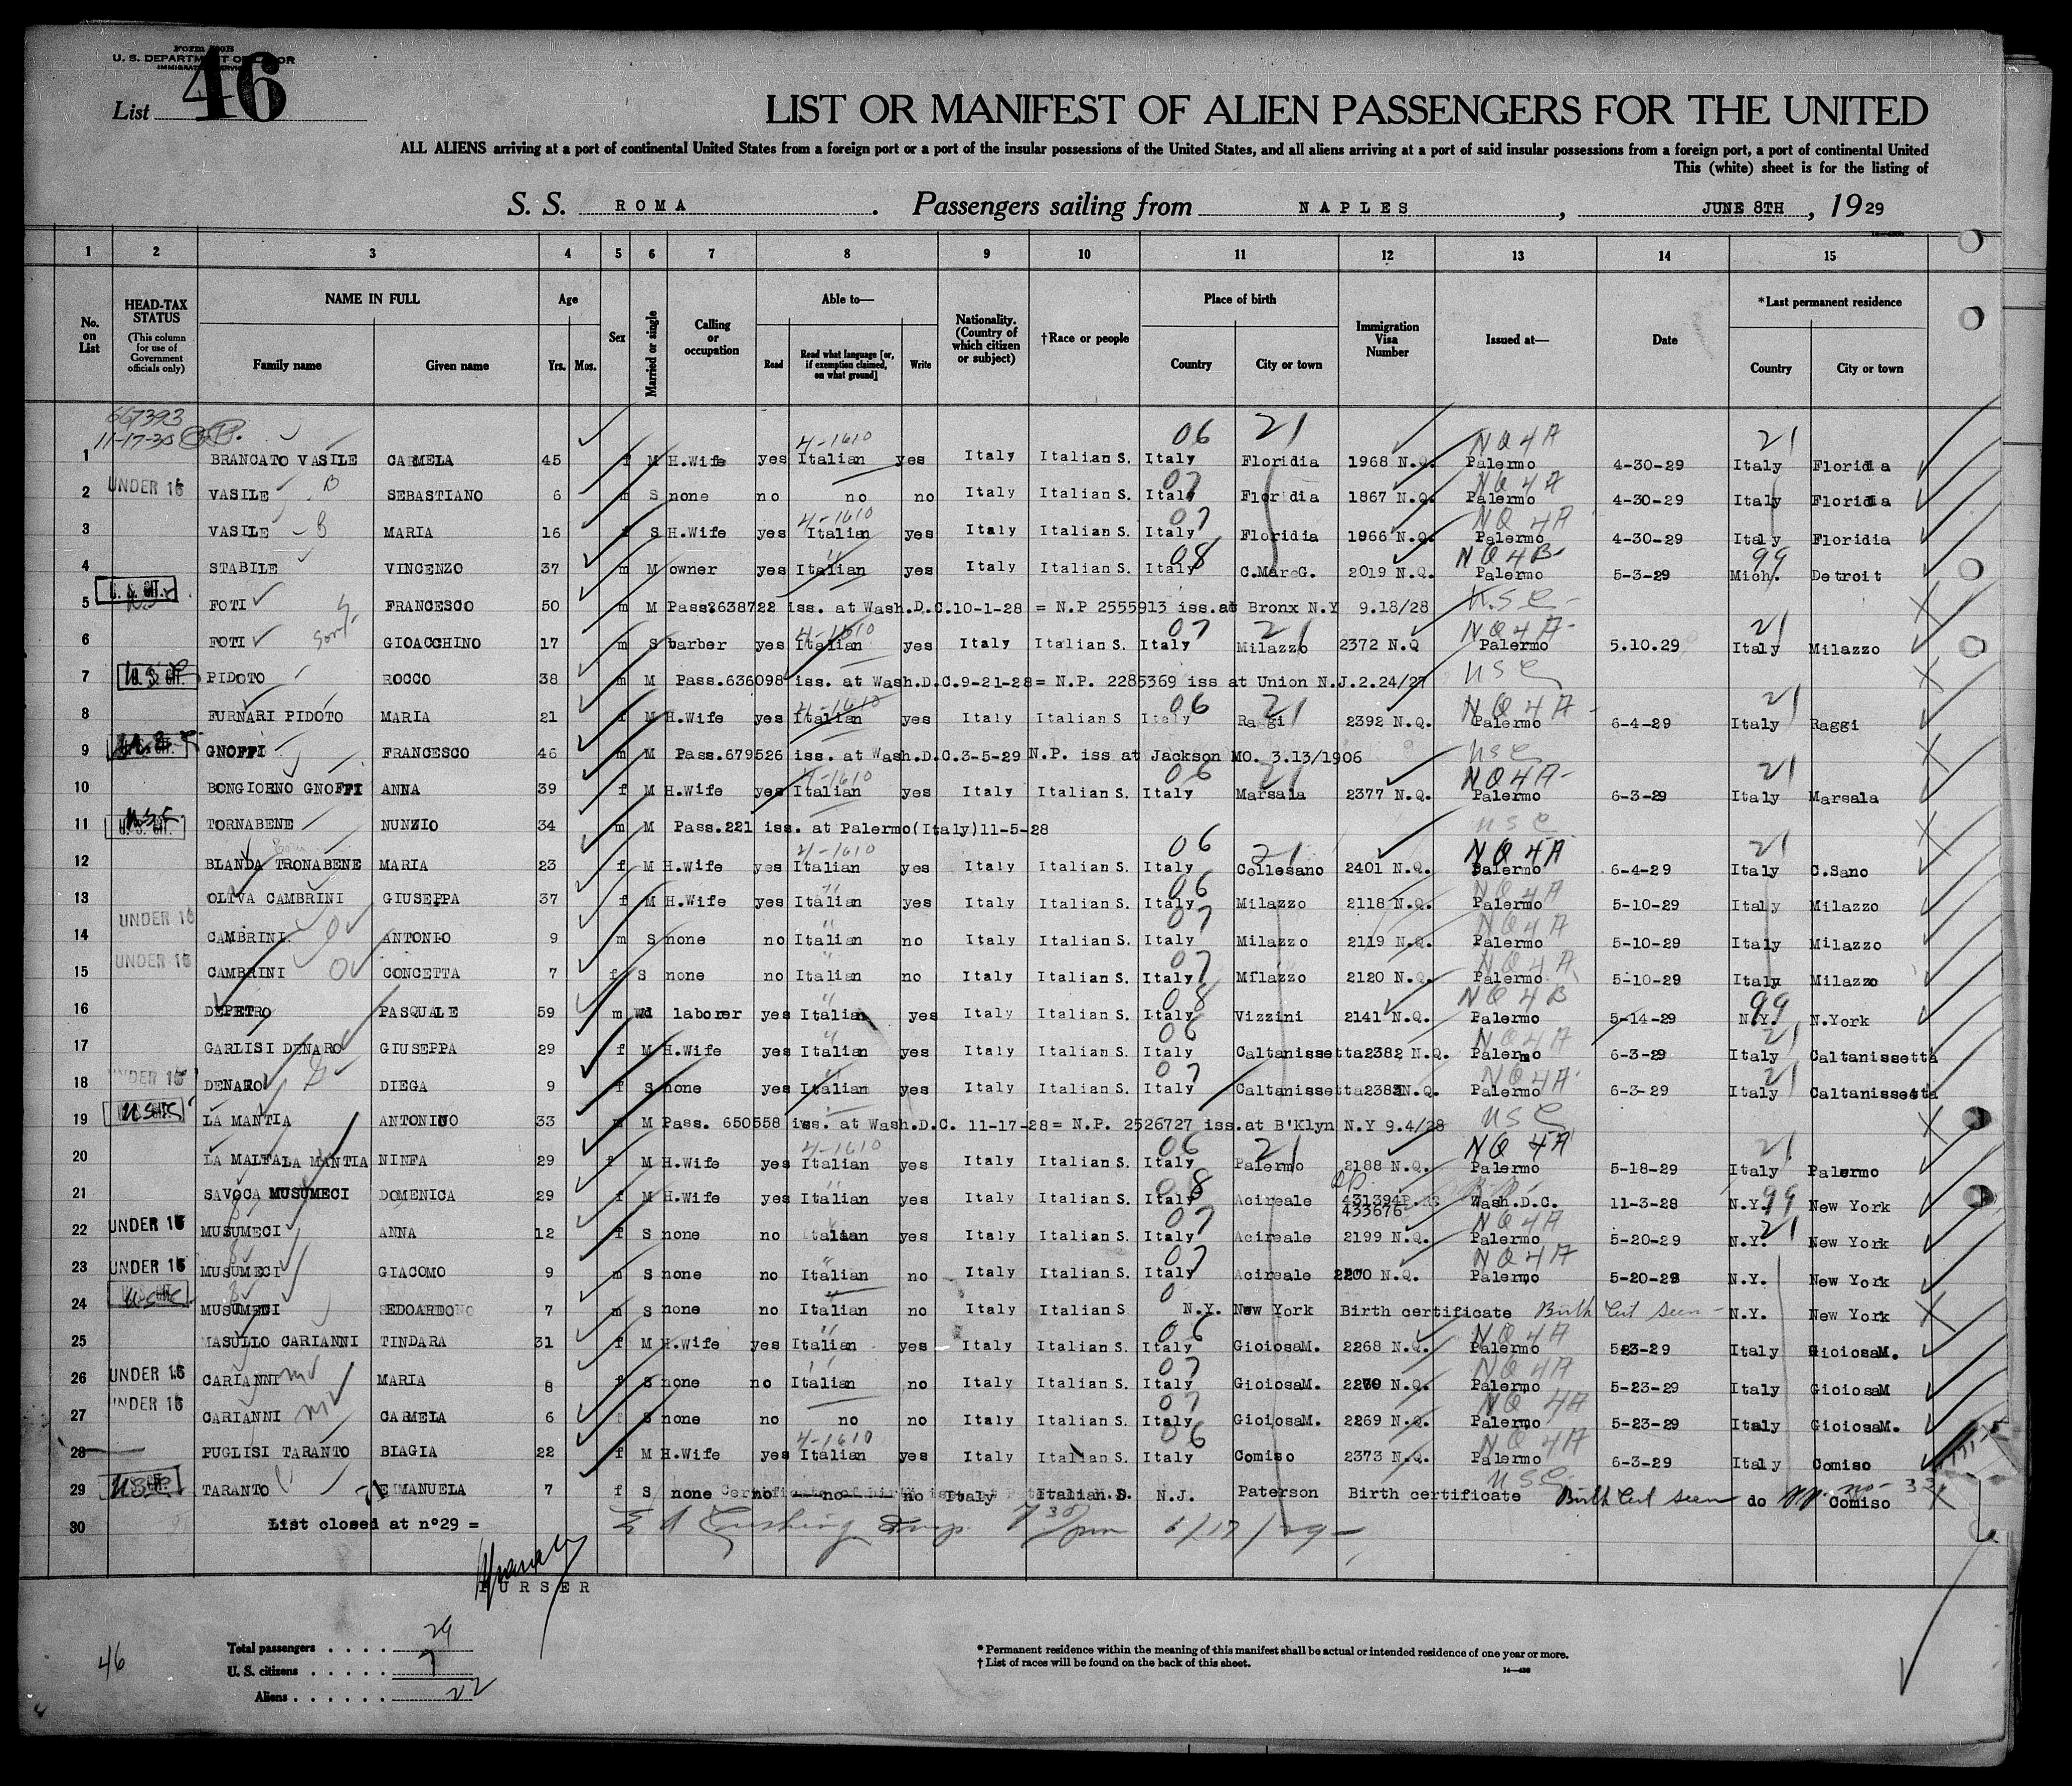 Form 500B
U. S. DEPARTMENT OF LABOR
IMMIGRATION SERVICE
List 46
LIST OR MANIFEST OF ALIEN PASSENGERS FOR THE UNITED
ALL ALIENS arriving at a port of continental United States from a foreign port or a port of the insular possessions of the United States, and all aliens arriving at a port of said insular possessions from a foreign port, a port of continental United
This (white) sheet is for the listing of
S. S. ROMA . Passengers sailing from NAPLES , JUNE 8TH , 1929
1 2 3 4 5 6 7 8 9 10 11 12 13 14 15
No. on List
HEAD-TAX STATUS (This column for use of Government officials only)
NAME IN FULL Family name Given name
Age Yrs. Mos.
Sex
Married or single
Calling or occupation
Able to— Read Read what language [or, if exemption claimed, on what ground] Write
Nationality. (Country of which citizen or subject)
†Race or people
Place of birth Country City or town
Immigration Visa Number
Issued at—
Date
*Last permanent residence Country City or town
667393
11-17-30
4-1610 06 21 NQ4A 21
1 BRANCATO VASILE CARMELA 45 f M H.Wife yes Italian yes Italy Italian S. Italy Floridia 1968 N.Q. Palermo 4-30-29 Italy Floridia
UNDER 16 07 NQ4A
2 VASILE SEBASTIANO 6 m S none no no no Italy Italian S. Italy Floridia 1867 N.Q. Palermo 4-30-29 Italy Floridia
4-1610 07 NQ4A
3 VASILE MARIA 16 f S H.Wife yes Italian yes Italy Italian S. Italy Floridia 1966 N.Q. Palermo 4-30-29 Italy Floridia
08 NQ4B 99
4 STABILE VINCENZO 37 m M owner yes Italian yes Italy Italian S. Italy C.MarG. 2019 N.Q. Palermo 5-3-29 Mich. Detroit
U. S. CIT.
5 FOTI FRANCESCO 50 m M Pass.638722 iss. at Wash.D.C.10-1-28 = N.P 2555913 iss.at Bronx N.Y 9.18/28 U.S.C
4-1610 07 21 NQ4A 21
6 FOTI GIOACCHINO 17 m S barber yes Italian yes Italy Italian S. Italy Milazzo 2372 N.Q Palermo 5.10.29 Italy Milazzo
U. S. CIT.
7 PIDOTO ROCCO 38 m M Pass.636098 iss. at Wash.D.C.9-21-28= N.P. 2285369 iss at Union N.J.2.24/27 USC
4-1610 06 21 NQ4A 21
8 FURNARI PIDOTO MARIA 21 f M H.Wife yes Italian yes Italy Italian S Italy Raggi 2392 N.Q. Palermo 6-4-29 Italy Raggi
9 GNOFFI FRANCESCO 46 m M Pass.679526 iss. at Wash.D.C.3-5-29 N.P. iss at Jackson MO. 3.13/1906 USC
4-1610 06 21 NQ4A 21
10 BONGIORNO GNOFFI ANNA 39 f M H.Wife yes Italian yes Italy Italian S. Italy Marsala 2377 N.Q. Palermo 6-3-29 Italy Marsala
U. S. CIT.
11 TORNABENE NUNZIO 34 m M Pass.221 iss. at Palermo(Italy)11-5-28 USC
4-1610 06 21 NQ4A 21
12 BLANDA TRONABENE MARIA 23 f M H.Wife yes Italian yes Italy Italian S. Italy Collesano 2401 N.Q. Palermo 6-4-29 Italy C.Sano
06 NQ4A
13 OLIVA CAMBRINI GIUSEPPA 37 f M H.Wife yes Italian yes Italy Italian S. Italy Milazzo 2118 N.Q. Palermo 5-10-29 Italy Milazzo
UNDER 16 07 NQ4A
14 CAMBRINI ANTONIO 9 m S none no Italian no Italy Italian S. Italy Milazzo 2119 N.Q. Palermo 5-10-29 Italy Milazzo
UNDER 16 07 NQ4A
15 CAMBRINI CONCETTA 7 f S none no Italian no Italy Italian S. Italy Milazzo 2120 N.Q. Palermo 5-10-29 Italy Milazzo
08 NQ4B 99
16 DEPETRO PASQUALE 59 m Wd laborer yes Italian yes Italy Italian S. Italy Vizzini 2141 N.Q. Palermo 5-14-29 N.Y. N.York
06 NQ4A 21
17 GARLISI DENARO GIUSEPPA 29 f M H.Wife yes Italian yes Italy Italian S. Italy Caltanissetta 2382 N.Q. Palermo 6-3-29 Italy Caltanissetta
UNDER 16 07 NQ4A 21
18 DENARO DIEGA 9 f S none yes Italian yes Italy Italian S. Italy Caltanissetta 2383 N.Q. Palermo 6-3-29 Italy Caltanissetta
19 LA MANTIA ANTONINO 33 m M Pass. 650558 iss. at Wash.D.C. 11-17-28= N.P. 2526727 iss.at B'Klyn N.Y 9.4/28 USC
4-1610 06 21 NQ4A 21
20 LA MALFA LA MANTIA NINFA 29 f M H.Wife yes Italian yes Italy Italian S. Italy Palermo 2188 N.Q. Palermo 5-18-29 Italy Palermo
08 99
21 SAVOCA MUSUMECI DOMENICA 29 f M H.Wife yes Italian yes Italy Italian S. Italy Acireale 431394 433676 Wash.D.C. 11-3-28 N.Y. New York
UNDER 16 07 NQ4A 21
22 MUSUMECI ANNA 12 f S none no Italian yes Italy Italian S. Italy Acireale 2199 N.Q. Palermo 5-20-29 N.Y. New York
UNDER 16 07 NQ4A
23 MUSUMECI GIACOMO 9 m S none no Italian no Italy Italian S. Italy Acireale 2200 N.Q. Palermo 5-20-29 N.Y. New York
24 MUSUMECI EDOARDO 7 m S none no Italian no Italy Italian S N.Y. New York Birth certificate Birth Cert seen N.Y. New York
06 NQ4A
25 MASULLO CARIANNI TINDARA 31 f M H.Wife yes Italian yes Italy Italian S. Italy GioiosaM. 2268 N.Q. Palermo 5-23-29 Italy GioiosaM.
UNDER 16 07 NQ4A
26 CARIANNI MARIA 8 f S none no Italian no Italy Italian S. Italy GioiosaM. 2270 N.Q. Palermo 5-23-29 Italy GioiosaM
UNDER 16 07 NQ4A
27 CARIANNI CARMELA 6 f S none no no no Italy Italian S. Italy GioiosaM. 2269 N.Q. Palermo 5-23-29 Italy GioiosaM.
4-1610 06 NQ4A
28 PUGLISI TARANTO BIAGIA 22 f M H.Wife yes Italian yes Italy Italian S. Italy Comiso 2373 N.Q. Palermo 6-3-29 Italy Comiso
USC
29 TARANTO EMANUELA 7 f S none no no no Italy Italian S. N.J. Paterson Birth certificate Birth Cert seen do Comiso
30 List closed at n°29 =
7 30 pm 6/17/29
PURSER
46
Total passengers . . . . 29
U. S. citizens . . . . . 7
Aliens . . . . . . 22
* Permanent residence within the meaning of this manifest shall be actual or intended residence of one year or more.
† List of races will be found on the back of this sheet.